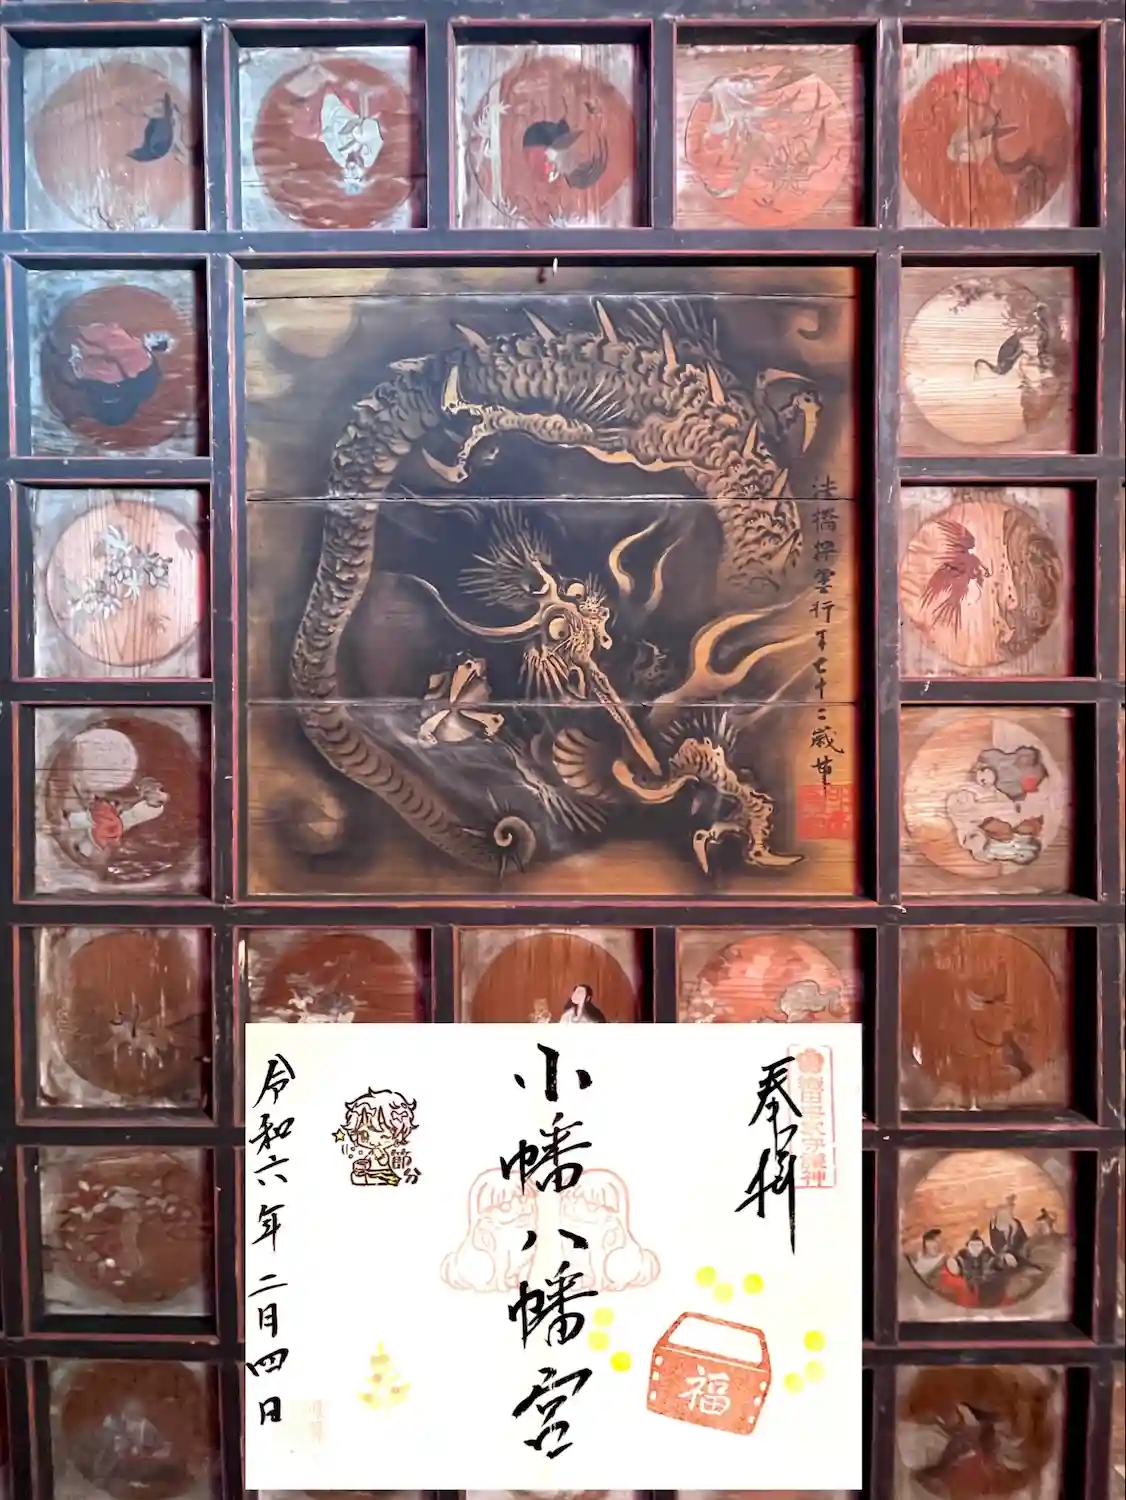 法橋翠雲行年七十二歳筆
奉拝
織田宗家守護神
小幡八幡宮
節分
福
令和六年二月四日